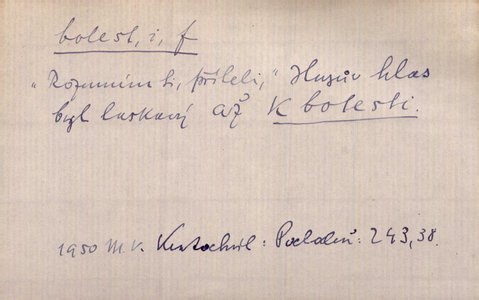 bolest, i, f
"Rozumím ti, příteli," Husův hlas
byl laskavý až k bolesti.
1950 M.V. Kratochvíl: Pochodeň: 293,38.